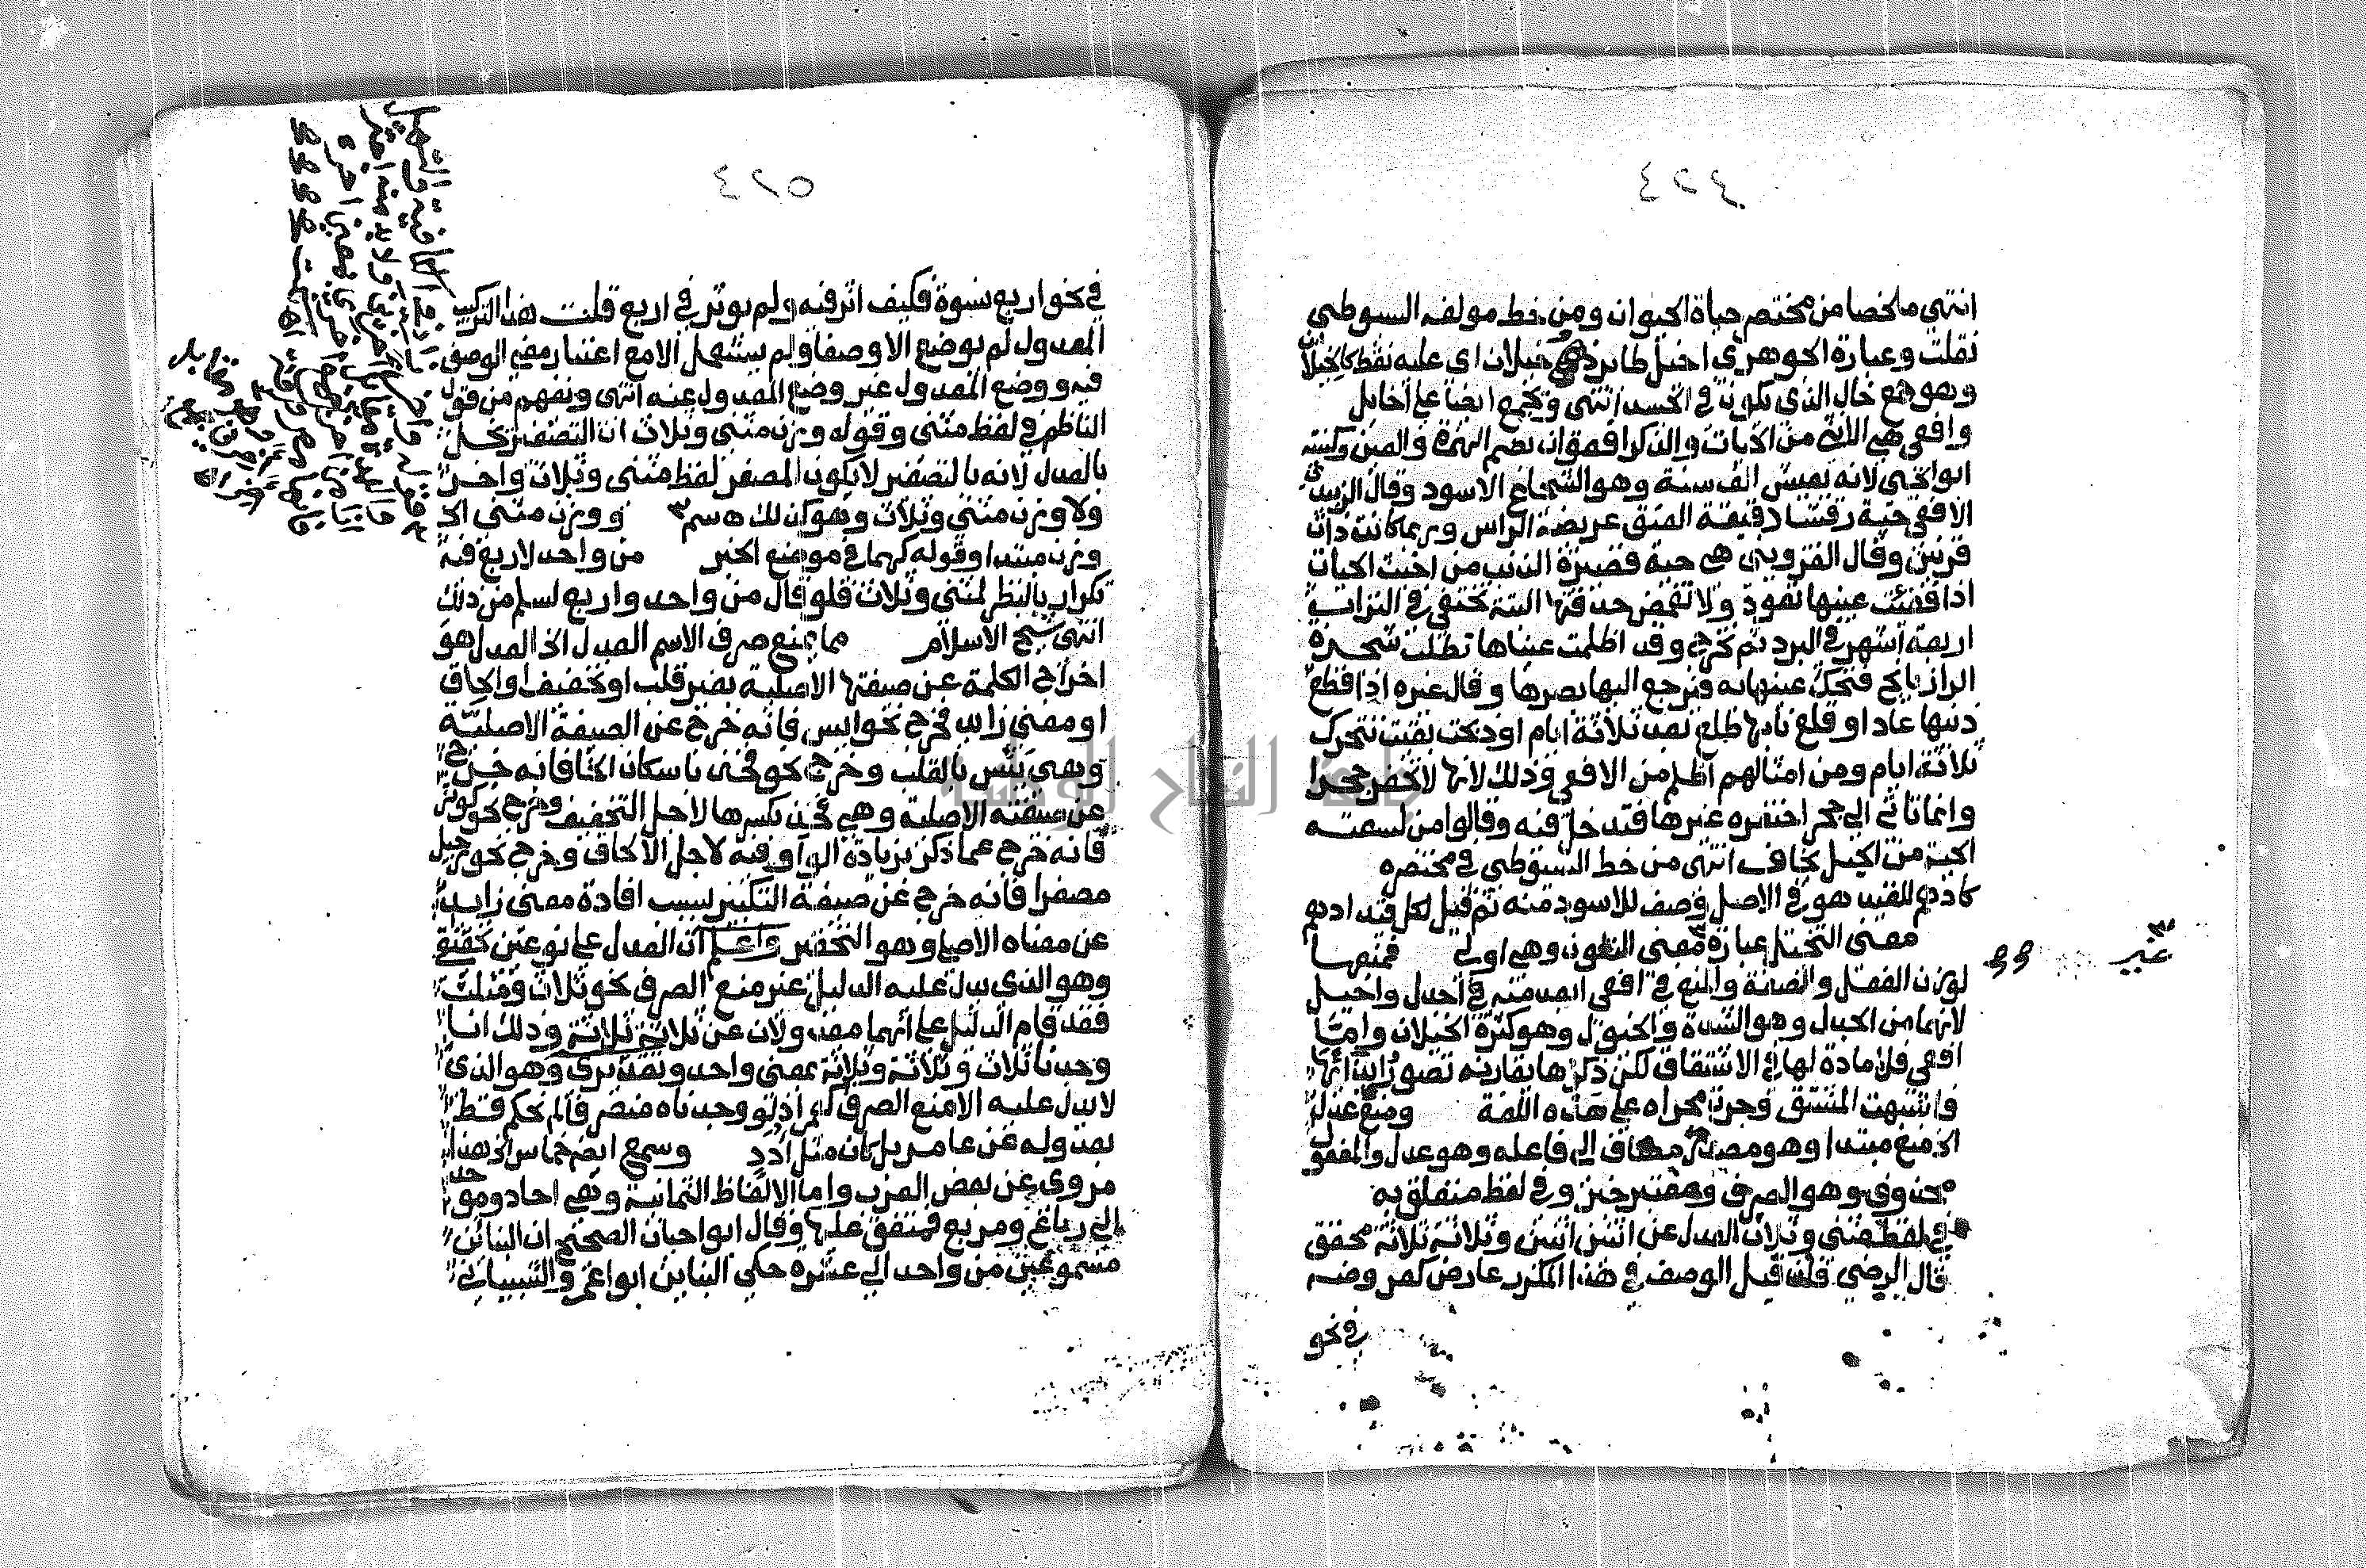 ٤٢٤
انتهى ملخصا من مختصر حياة الحيوان ومن خط مولفه السيوطي
نقلت وعبارة الجوهري اخيل طاير خيلان اى عليه نقط كالخيلان
وهو جمع خال الذى يكون في الجسد انتهى ويجمع ايضا على اخايل
وافعى هي الانثى من الحيات والذكر افعوان بضم الهمزة والعين وكنيته
ابو يحيى لانه يعيش الف سنة وهو الشجاع الاسود وقال الزبيدى
الافعى حية رقشا دقيقة العنق عريضة الراس وربما كانت ذات
قرنين وقال القزويني هي حية قصيرة الذنب من اخبث الحيات
اذا فقئت عينها تعود ولا تغمض حدقتها البتة تختفى في التراب
اربعة اشهر في البرد ثم تخرج وقد اظلمت عيناها تطلب شجرة
الرازيانج فتحك عينها به فيرجع اليها بصرها وقال غيره اذا قطع
ذنبها عاد او قلع نابها طلع بعد ثلاثة ايام او ذبحت بقيت تتحرك
ثلاثة ايام ومن امثالهم اظلم من الافعى وذلك لانها لا تحفر جحرا
وانما تاتى الى جحر احتفره غيرها فتدخل فيه وقالوا من لسعته
الحية من الحبل يخاف انتهى من خط السيوطي في مختصره
كاذهم للقيد هو في الاصل وصف للاسود منه ثم قيل لكل قيد ادهم
معنى التخيل عبارة معنى التلون وهي اولى فمنعها
غير
لوزن الفعل والصفة والمنع في افعى ابعد منه في اجدل واخيل
لانهما من الجدل وهو الشدة والخيول وهو كثرة الخيلان واما
افعى فلا مادة لها في الاشتقاق لكن ذكرها يقارنه تصور ايذائها
فاشبهت المشتق وجرت مجراه على هذه اللغة ومنع عدل
الخ منع مبتدا وهو مصدر مضاف الى فاعله وهو عدل والمفعول
محذوف وهو الصرف ومعتبر خبر وفي لفظ متعلق به
في لفظ مثنى وثلاث العدل عن اثنين اثنين وثلاثة ثلاثة محقق
قال الرضي فان قيل الوصف في هذا المكرر عارض كمررو ضه
في نحو
٤٢٥
في نحو اربع نسوة فكيف اثر فيه ولم يوثر في اربع قلت هذا التركيب
المعدول لم يوضع الا وصفا ولم يستعمل الا مع اعتبار معنى الوصف
فيه ووضع المعدول غير وضع المعدول عنه انتهى ونفهم من قول
الناظم في لفظ مثنى وقوله وزن مثنى وثلاث ان التصغير يخل
بالعدل لانه بالتصغير لا يكون المصغر لفظ مثنى وثلاث واخر
ولا وزن مثنى وثلاث وهو كذلك ووزن مثنى الخ
وزن مبتدا وقوله كهما في موضع الخبر من واحد لاربع فيه
تكرار بالنظر لمثنى وثلاث فلو قال من واحد واربع لسلم من ذلك
انتهى شيخ الاسلام مما يمنع صرف الاسم العدل الخ العدل هو
اخراج الكلمة عن صيغتها الاصلية بغير قلب او تخفيف او الحاق
او معنى زايد فخرج نحو ايس فانه خرج عن الصيغة الاصلية
وهي يئس بالقلب وخرج نحو فخذ باسكان الخا فانه خرج
عن صيغته الاصلية وهي فخذ بكسرها لاجل التخفيف وخرج نحو كوثر
فانه خرج عما ذكر بزيادة الواو فيه لاجل الالحاق وخرج نحو رجيل
مصغرا فانه خرج عن صيغة التكبير لسبب افادة معنى زايد
عن معناه الاصلي وهو التحقير واعلم ان العدل على نوعين تحقيق
وهو الذي يدل عليه الدليل غير منع الصرف نحو ثلاث ومثلث
فقد قام الدليل على انهما معدولان عن ثلاثة ثلاثة وذلك انا
وجدنا ثلاث وثلاثة وثلاثة بمعنى واحد وتقديرى وهو الذى
لا يدل عليه الا منع الصرف كعمر اذ لو وجدناه منصرفا لم نحكم قط
بعدوله عن عامر بل كان مثل ادد وسمع ايضا خماس الخ هذا
مروى عن بعض العرب واما الالفاظ الثمانية وهي احاد وموحد
الى رباع ومربع فمتفق عليها وقال ابو حيان الصحيح ان البنائين
مسموعين من واحد الى عشرة حكى البناين ابو اعمر والشيبانى